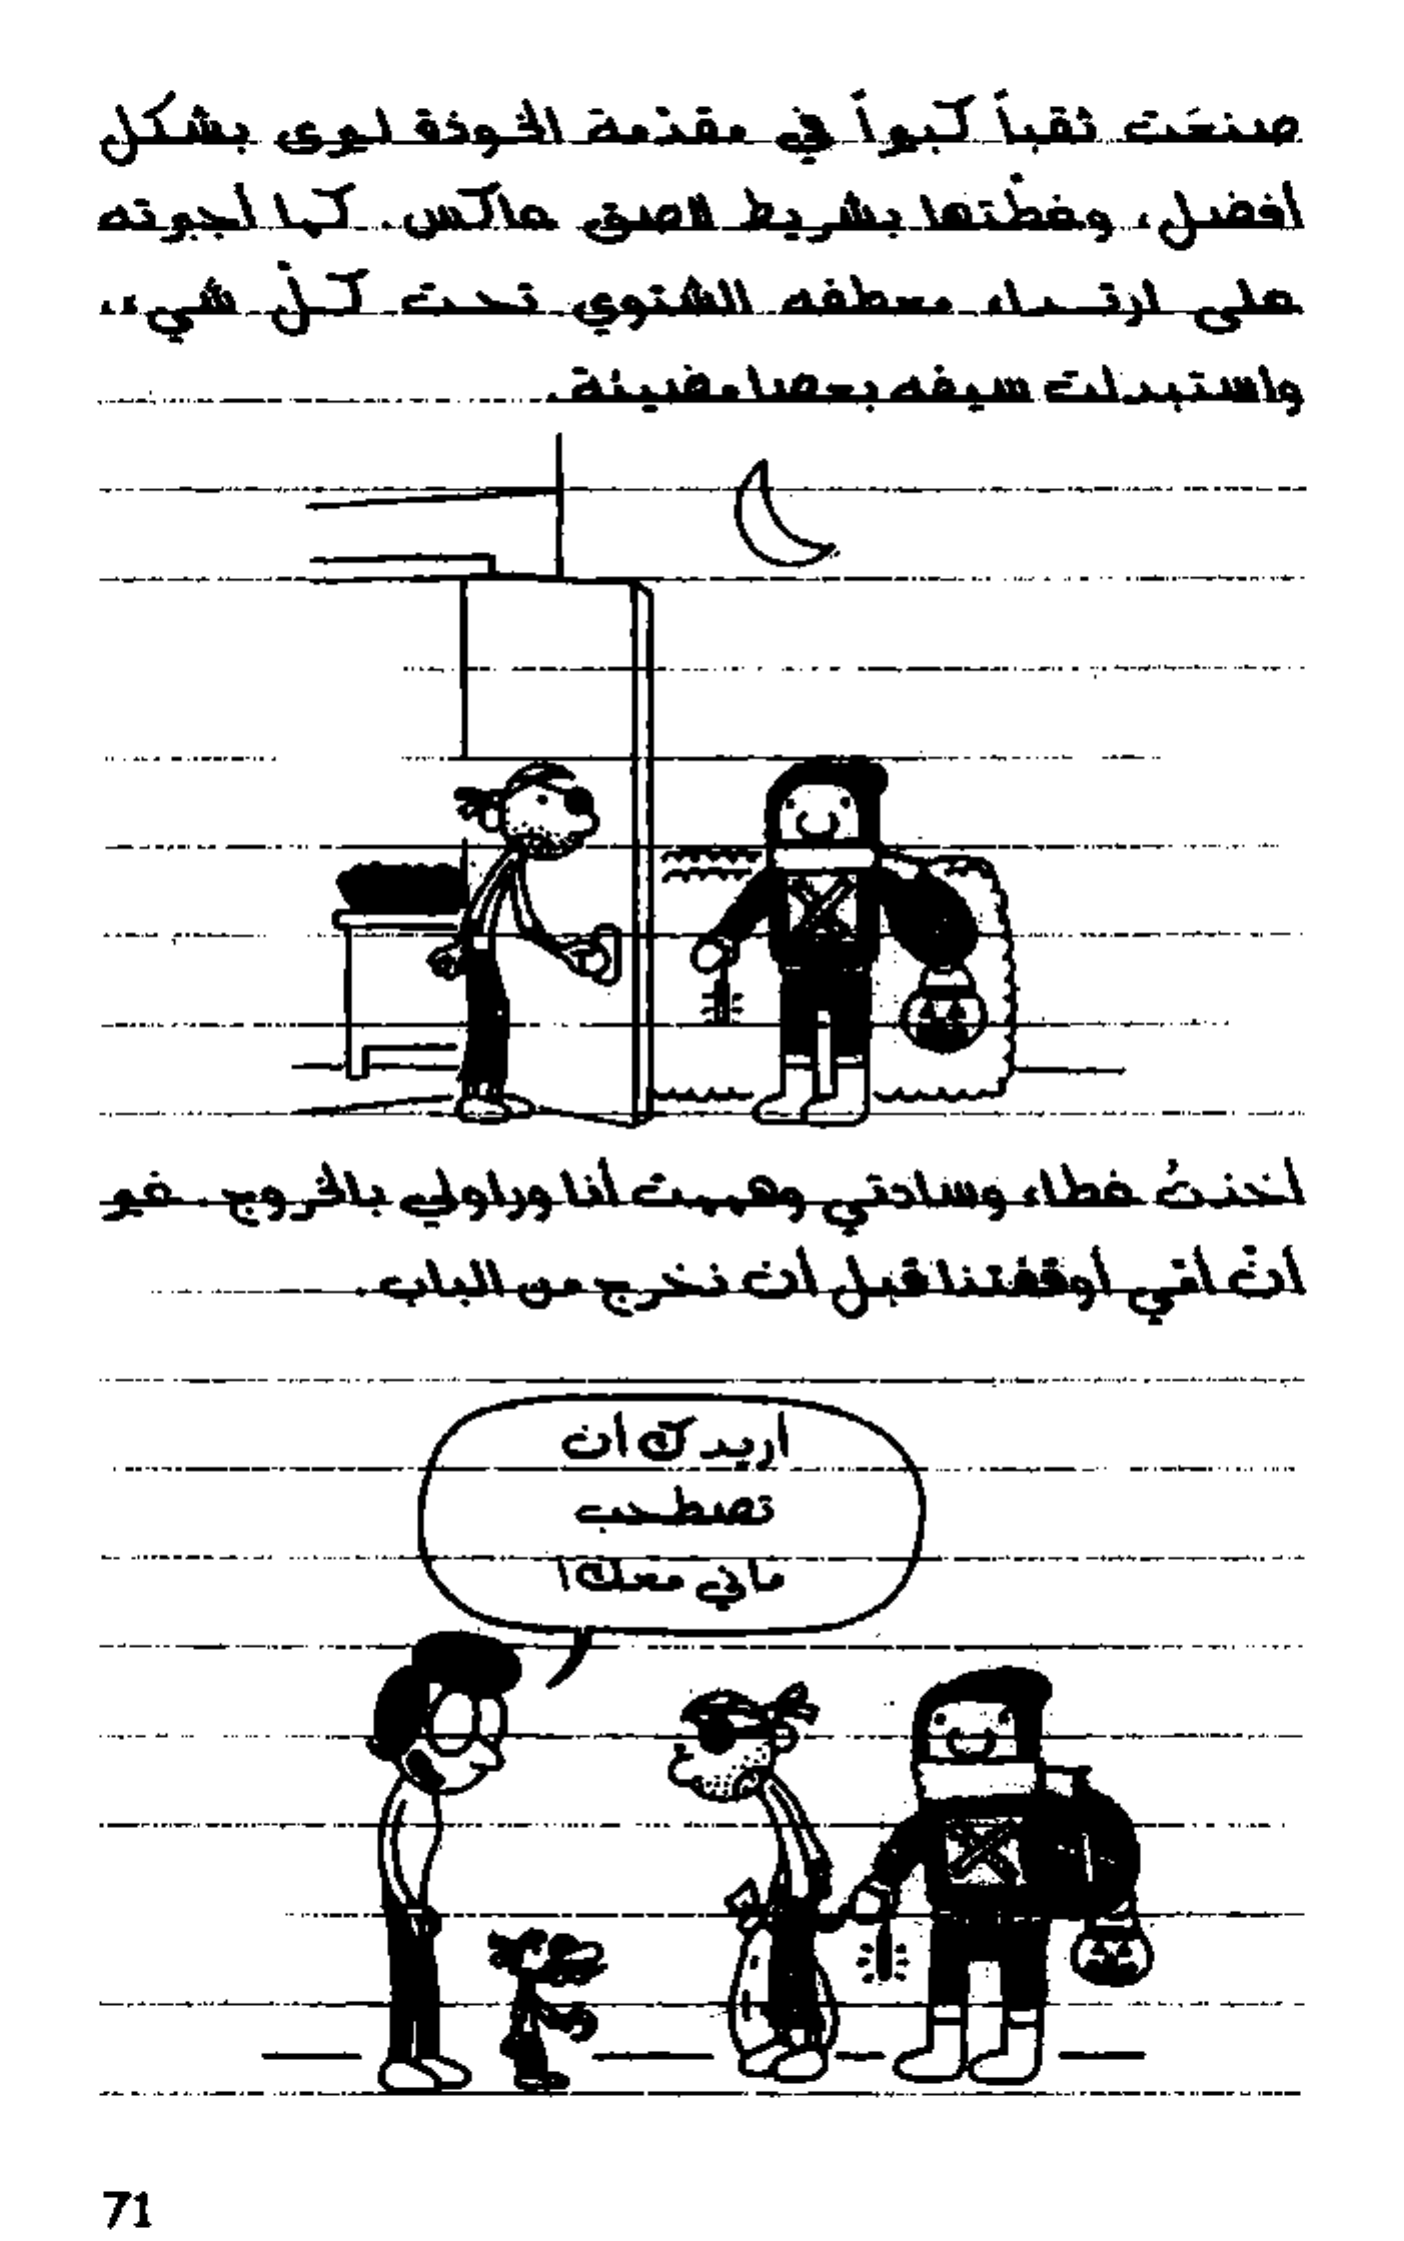 صنعَت ثقباً كبيراً في مقدّمة الخوذة ليرى بشكل
أفضل، وغطّتها بشريط لاصق عاكس. كما أجبرته
على ارتداء معطفه الشتوي تحت كلّ شيء،
واستبدلت سيفه بعصا مضيئة.
أخذتُ غطاء وسادتي وهممت أنا وراولي بالخروج. غير
أنّ أمّي أوقفتنا قبل أن نخرج من الباب.
أريدك أن
تصطحب
ماني معك!
71